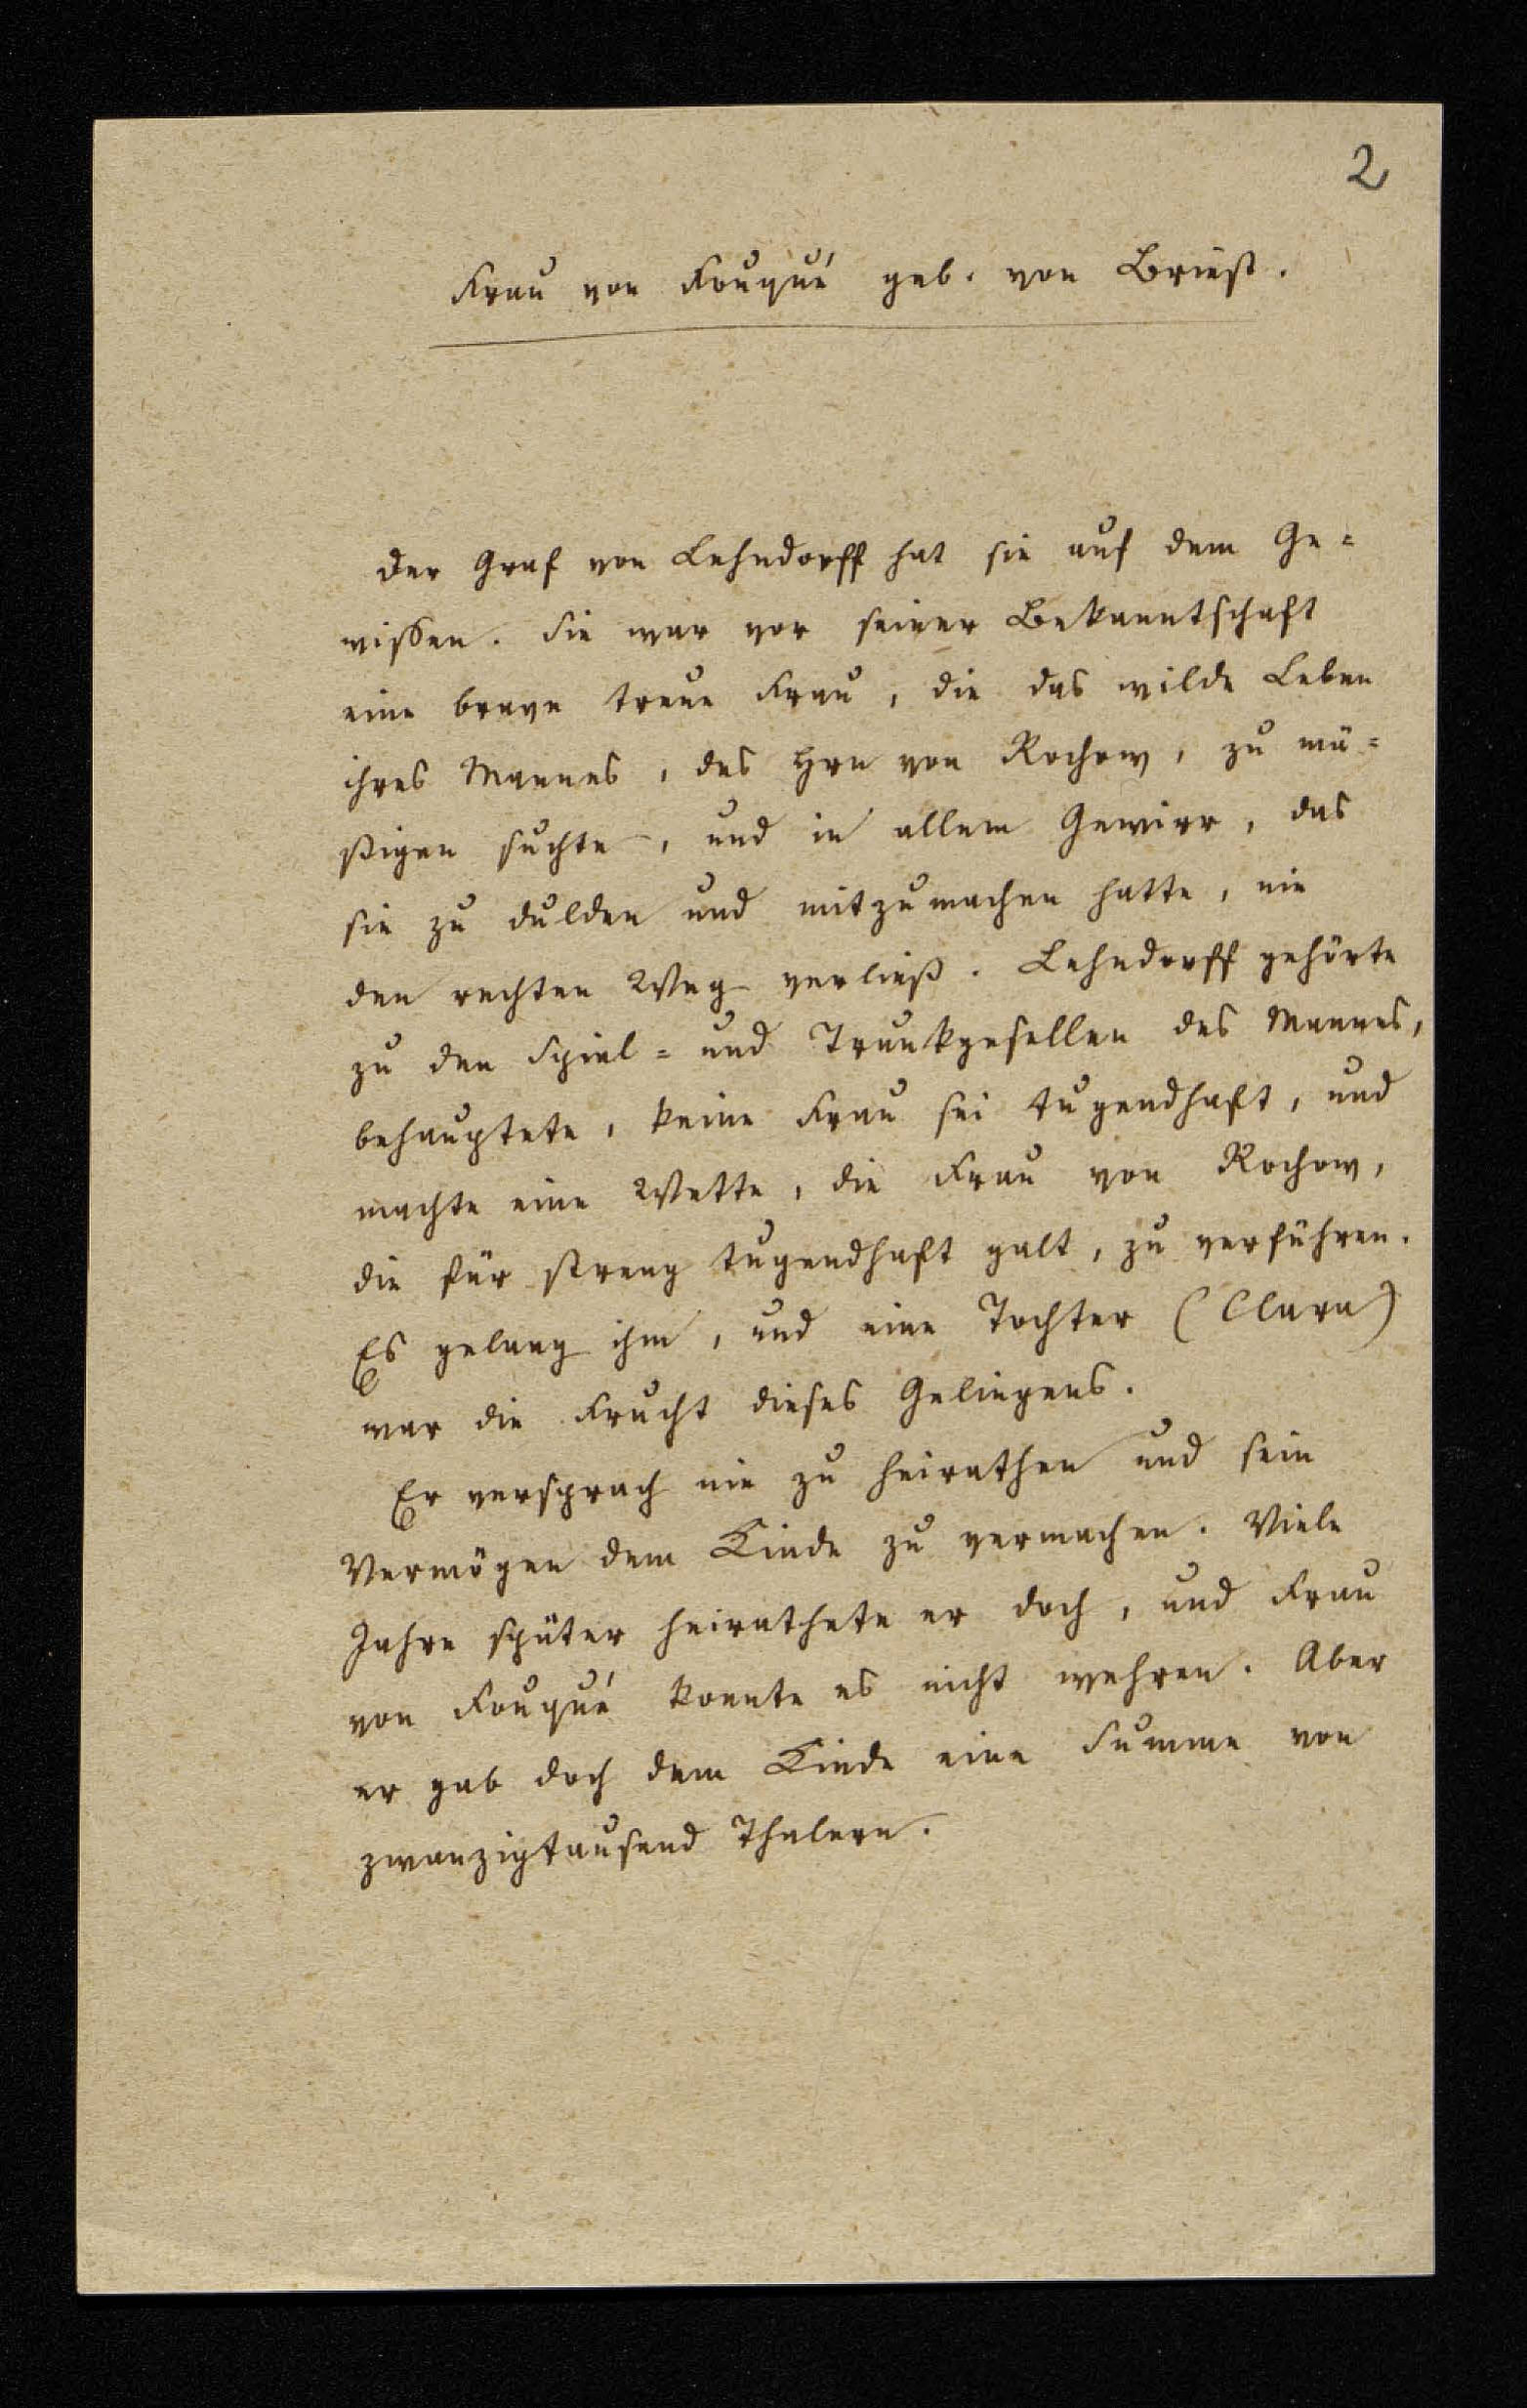 2
Frau von Fouqué geb. von Briest.
Der Graf von Lehndorff hat sie auf dem Ge=
wissen. Sie war vor seiner Bekanntschaft
eine brave treue Frau, die das wilde Leben
ihres Mannes, des Hrn von Rochow, zu mä=
ßigen suchte, und in allem Gewirr, das
sie zu dulden und mitzumachen hatte, nie
den rechten Weg verließ. Lehndorff gehörte
zu den Spiel= und Trunkgesellen des Mannes,
behauptete, keine Frau sei tugendhaft, und
machte eine Wette, die Frau von Rochow,
die für streng tugendhaft galt, zu verführen.
Es gelang ihm, und eine Tochter (Clara)
war die Frucht dieses Gelingens.
Er versprach nie zu heirathen und sein
Vermögen dem Kinde zu vermachen. Viele
Jahre später heirathete er doch, und Frau
von Fouqué konnte es nicht wehren. Aber
er gab doch dem Kinde eine Summe von
zwanzigtausend Thalern.